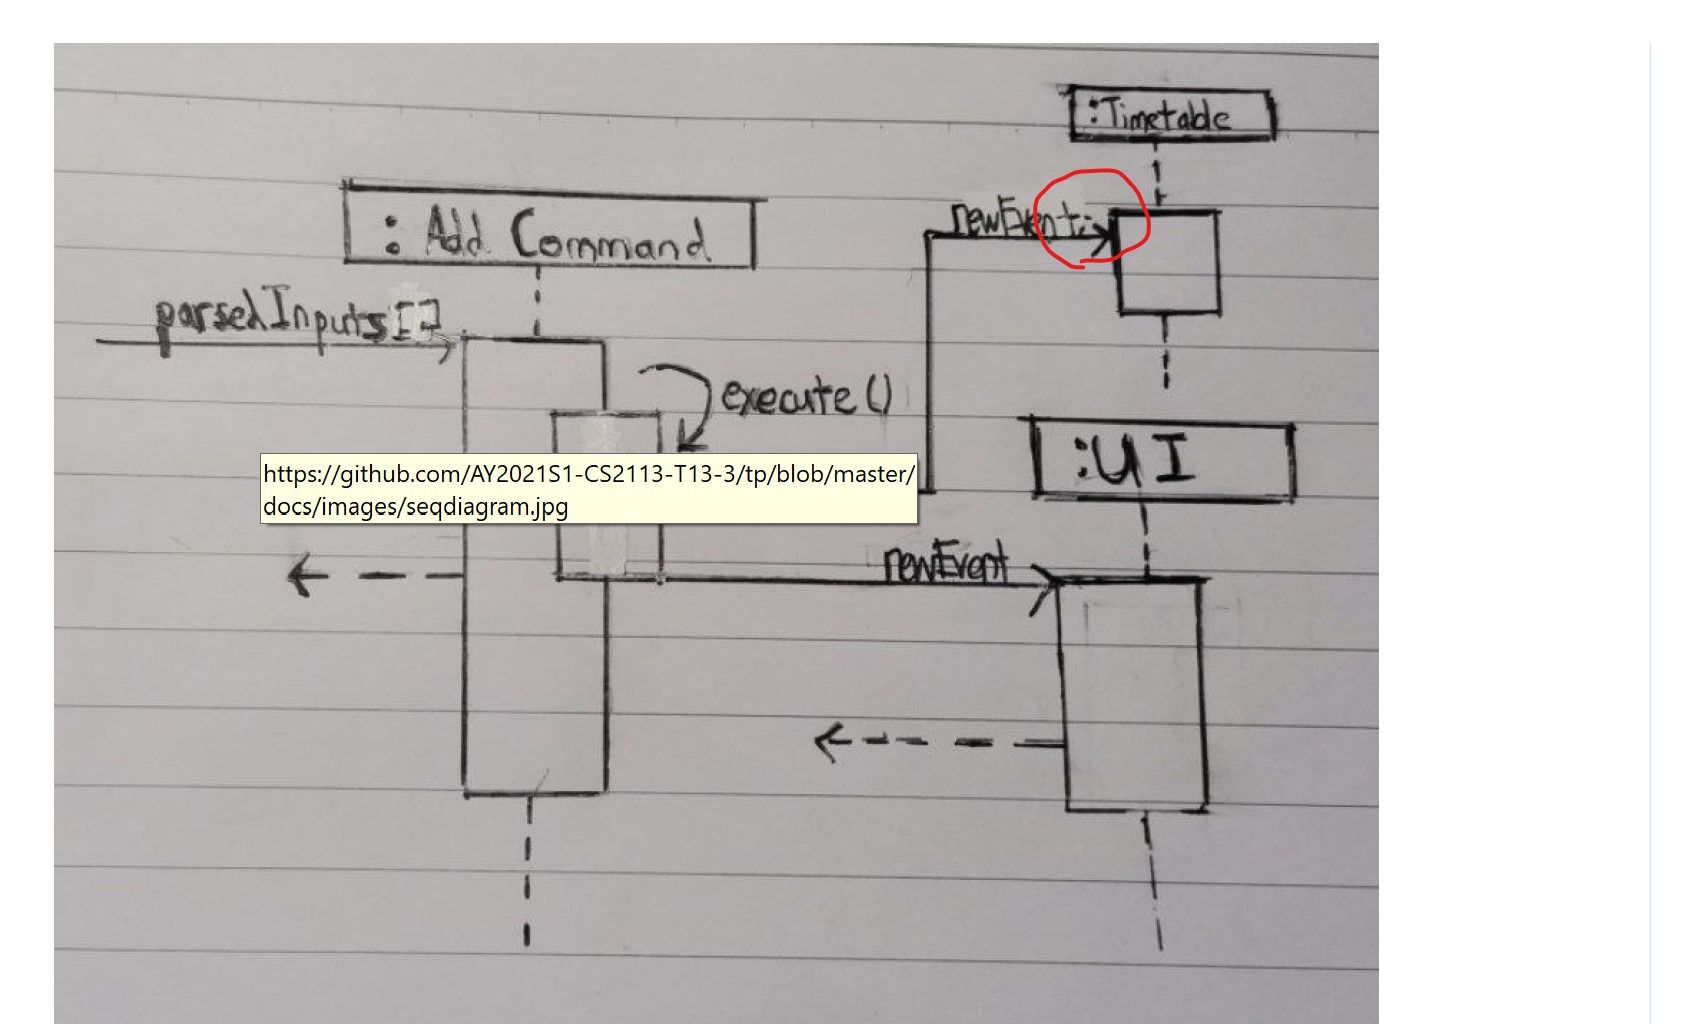 :Timetable
newEvent;
: Add Command
parsedInputs[]
execute()
:UI
https://github.com/AY2021S1-CS2113-T13-3/tp/blob/master/
docs/images/seqdiagram.jpg
newEvent